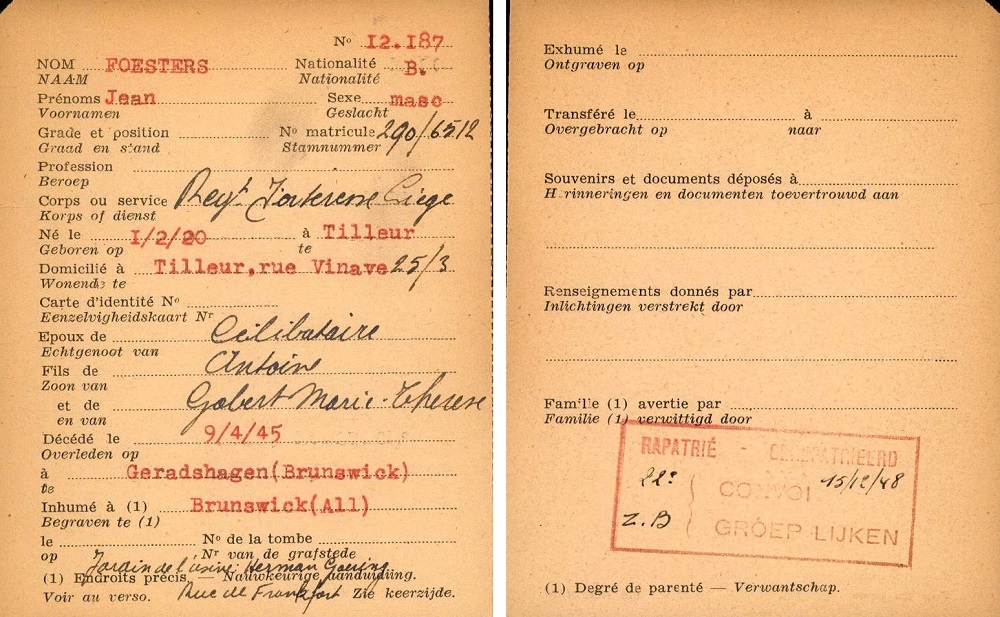 No 12.187
NOM FOESTERS Nationalité B.
NAAM Nationalité
Prénoms Jean Sexe masc
Voornamen Geslacht
Grade et position No matricule 290/6512
Graad en stand Stamnummer
Profession
Beroep
Corps ou service Regt Forteresse Liège
Korps of dienst
Né le 1/2/20 à Tilleur
Geboren op te
Domicilié à Tilleur,rue Vinave 25/3
Wonende te
Carte d'identité No
Eenzelvigheidskaart Nr
Epoux de Célibataire
Echtgenoot van
Fils de Antoine
Zoon van
et de Gobert Marie-Therese
en van
Décédé le 9/4/45
Overleden op
à Geradshagen(Brunswick)
te
Inhumé à (1) Brunswick(All)
Begraven te (1)
le No de la tombe
op Nr van de grafstede
Jardin de l'usine Herman Goering
(1) Endroits précis. — Nauwkeurige aanduiding.
Rue de Frankfort
Voir au verso. Zie keerzijde.
Exhumé le
Ontgraven op
Transféré le à
Overgebracht op naar
Souvenirs et documents déposés à
H rinneringen en documenten toevertrouwd aan
Renseignements donnés par
Inlichtingen verstrekt door
Famille (1) avertie par
Familie (1) verwittigd door
RAPATRIÉ - GEREPATRIEERD
22e CONVOI 15/12/48
Z.B GROEP LIJKEN
(1) Degré de parenté — Verwantschap.